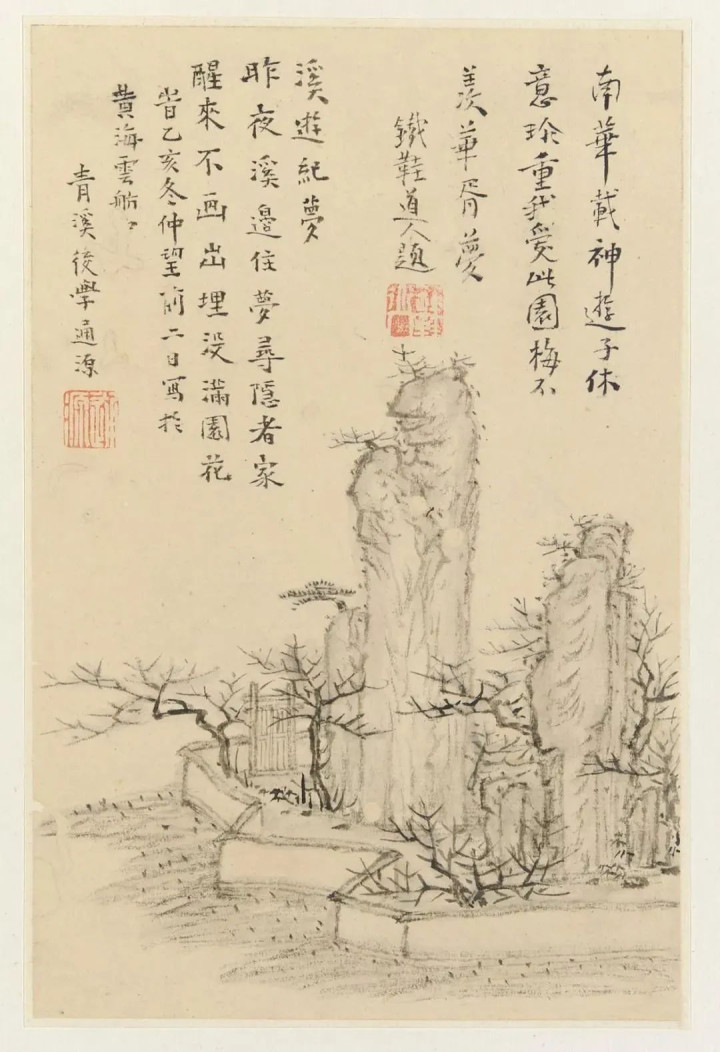 南華載神遊子休
意珍重我愛此園梅不
羨華胥夢
鐵鞋道人題
溪遊紀夢
昨夜溪邊住夢尋隱者家
醒來不画出埋没滿園花
旹乙亥冬仲望前二日寫於
黃海雲舫
青溪後學通源